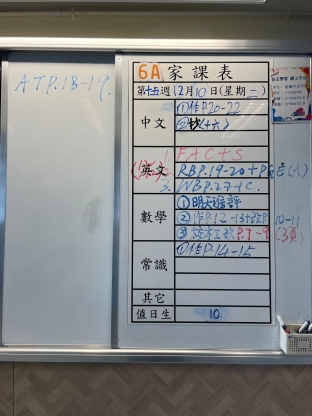 ATP.18-19.
6A 家課表
第十五週 12月10日(星期二)
中文
①作P.20-22
②找(十六)
英文
1. FAC+S
2. RBP.19-20+PGE(六)
3. NBP.27+C.
數學
①明天進評
②作P.12-13+
10-11
P.7-9(3頁)
常識
①作P.14-15
其它
值日生
10